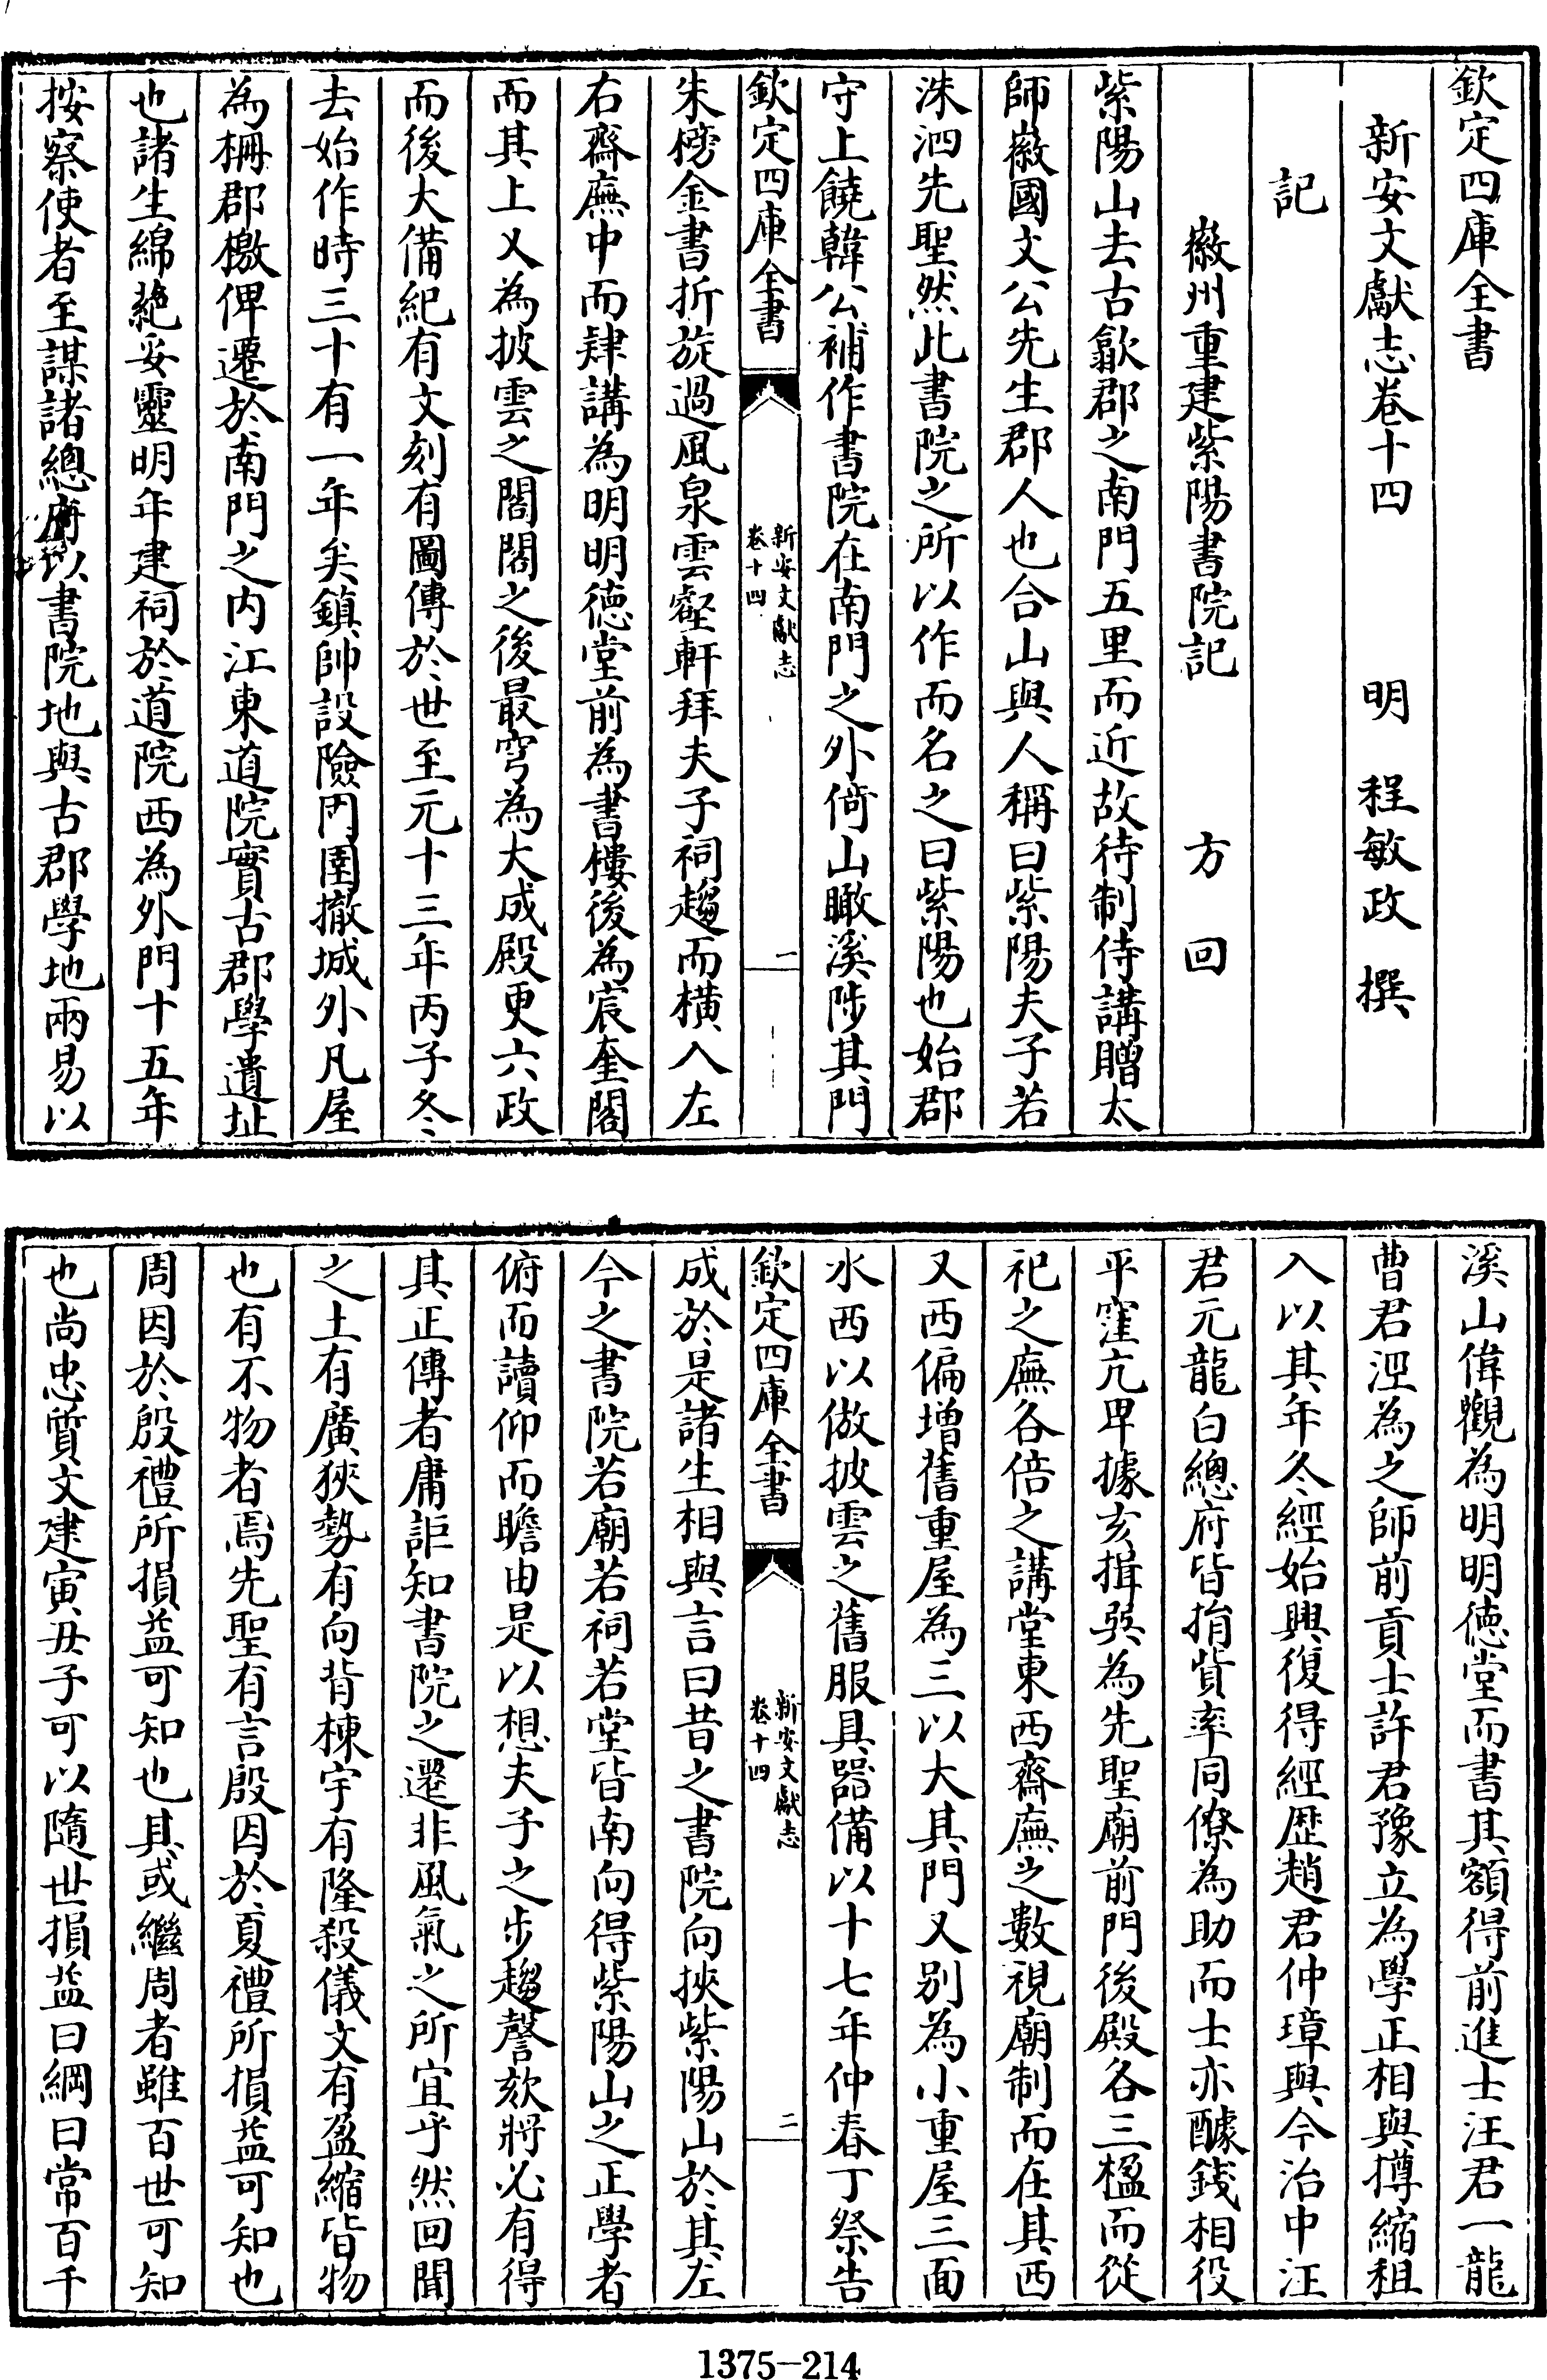 欽定四庫全書
新安文獻志卷十四　明　程敏政　撰
記
徽州重建紫陽書院記　方　回
紫陽山去古歙郡之南門五里而近故待制侍講贈太
師徽國文公先生郡人也合山與人稱曰紫陽夫子若
洙泗先聖然此書院之所以作而名之曰紫陽也始郡
守上饒韓公補作書院在南門之外倚山瞰溪陟其門
欽定四庫全書
新安文獻志
卷十四
一
朱榜金書折旋過風泉雲壑軒拜夫子祠趨而橫入左
右齋廡中而肄講為明明徳堂前為書樓後為宸奎閣
而其上乂為披雲之閣閣之後最穹為大成殿更六政
而後大備紀有文刻有圖傳於世至元十三年丙子冬
去始作時三十有一年矣鎮帥設險閉圉撤城外凡屋
為柵郡檄俾遷於南門之内江東道院實古郡學遺址
也諸生綿蕝妥靈明年建祠於道院西為外門十五年
按察使者至謀諸總府以書院地與古郡學地兩易以
溪山偉觀為明明徳堂而書其額得前進士汪君一龍
曹君涇為之師前貢士許君豫立為學正相與撙縮租
入以其年冬經始興復得經歴趙君仲璋與今治中汪
君元龍白總府皆捐貲率同僚為助而士亦醵錢相役
平窪亢卑據亥揖巽為先聖廟前門後殿各三楹而從
祀之廡各倍之講堂東西齋廡之數視廟制而在其西
又西偏增舊重屋為三以大其門又别為小重屋三面
水西以倣披雲之舊服具器備以十七年仲春丁祭告
欽定四庫全書
新安文獻志
卷十四
二
成於是諸生相與言曰昔之書院向挾紫陽山於其左
今之書院若廟若祠若堂皆南向得紫陽山之正學者
俯而讀仰而瞻由是以想夫子之步趨謦欬將必有得
其正傳者庸詎知書院之遷非風氣之所宜乎然回聞
之土有廣狹勢有向背棟宇有隆殺儀文有盈縮皆物
也有不物者焉先聖有言殷因於夏禮所損益可知也
周因於殷禮所損益可知也其或繼周者雖百世可知
也尚忠質文建寅丑子可以隨世損益曰綱曰常百千
1375-214